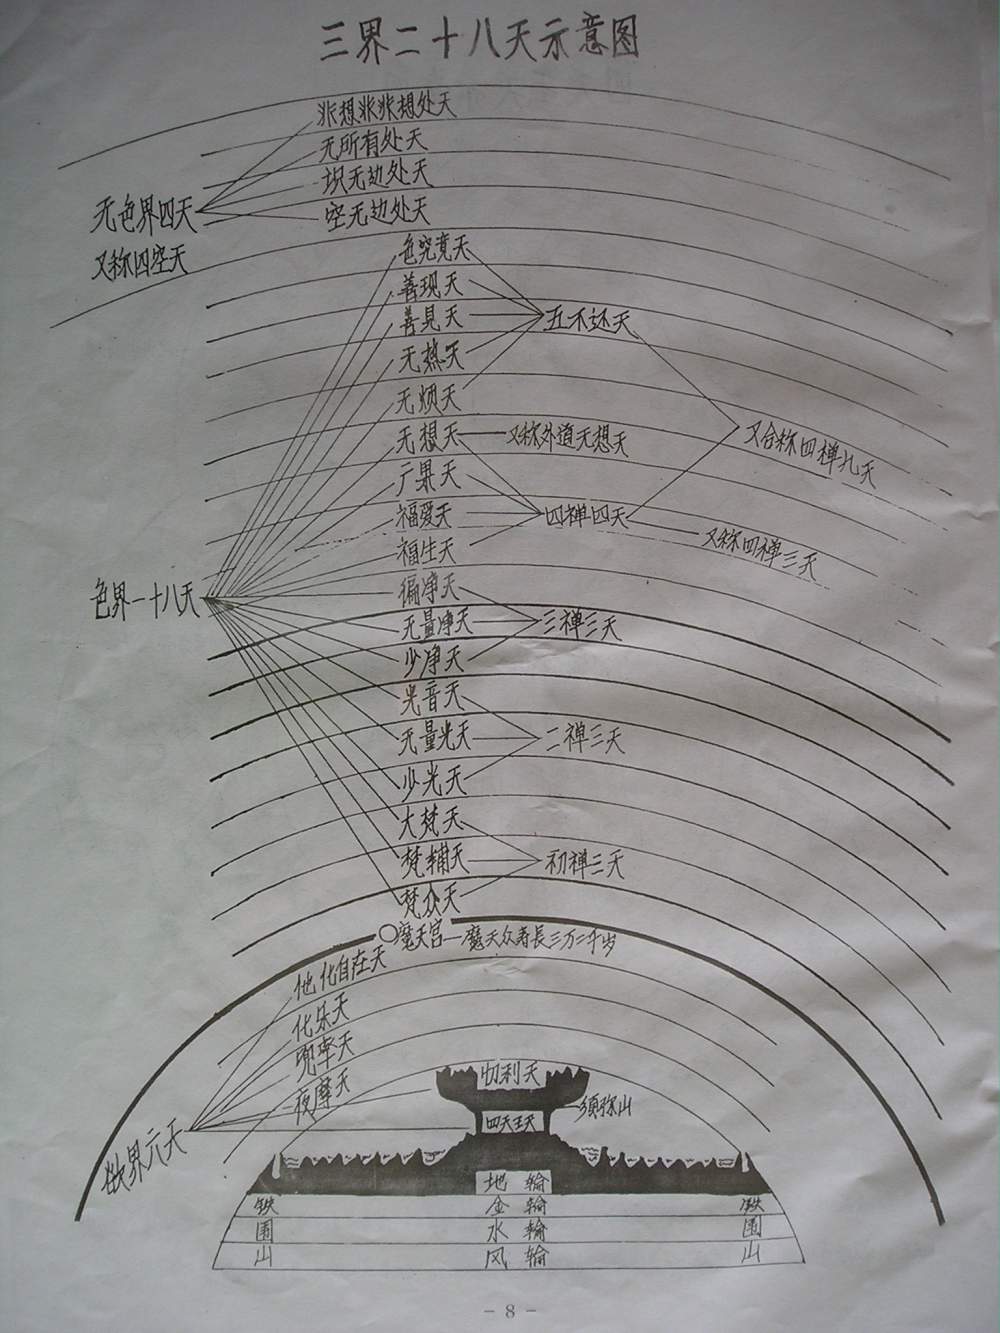 三界二十八天示意图
非想非非想处天
无所有处天
识无边处天
空无边处天
无色界四天
又称四空天
色究竟天
善现天
善见天
无热天
无烦天
五不还天
无想天
又称外道无想天
又合称四禅九天
广果天
福爱天
福生天
四禅四天
又称四禅三天
色界一十八天
徧净天
无量净天
少净天
三禅三天
光音天
无量光天
少光天
二禅三天
大梵天
梵辅天
梵众天
初禅三天
魔天宫—魔天众寿長三万二千岁
他化自在天
化乐天
兜率天
夜摩天
欲界六天
忉利天
四天王天
须弥山
地 輪
铁 金 輪 铁
围 水 輪 围
山 风 輪 山
- 8 -